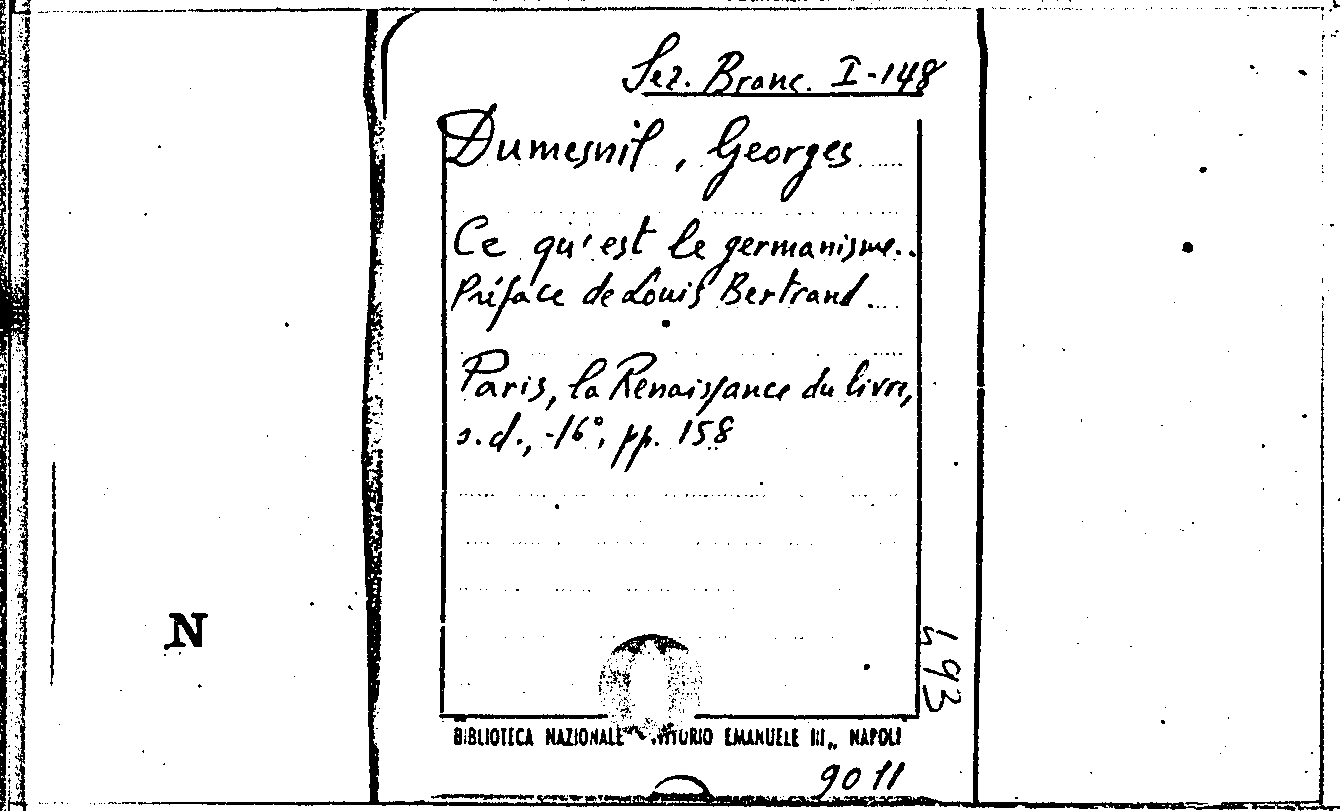 Sez. Branc. I-148
Dumesnil, Georges
Ce qu'est le germanisme..
Préface de Louis Bertrand.
Paris, la Renaissance du livre,
s.d., -16°, pp. 158
N
493
BIBLIOTECA NAZIONALE "VITTORIO EMANUELE III„ NAPOLI
9011